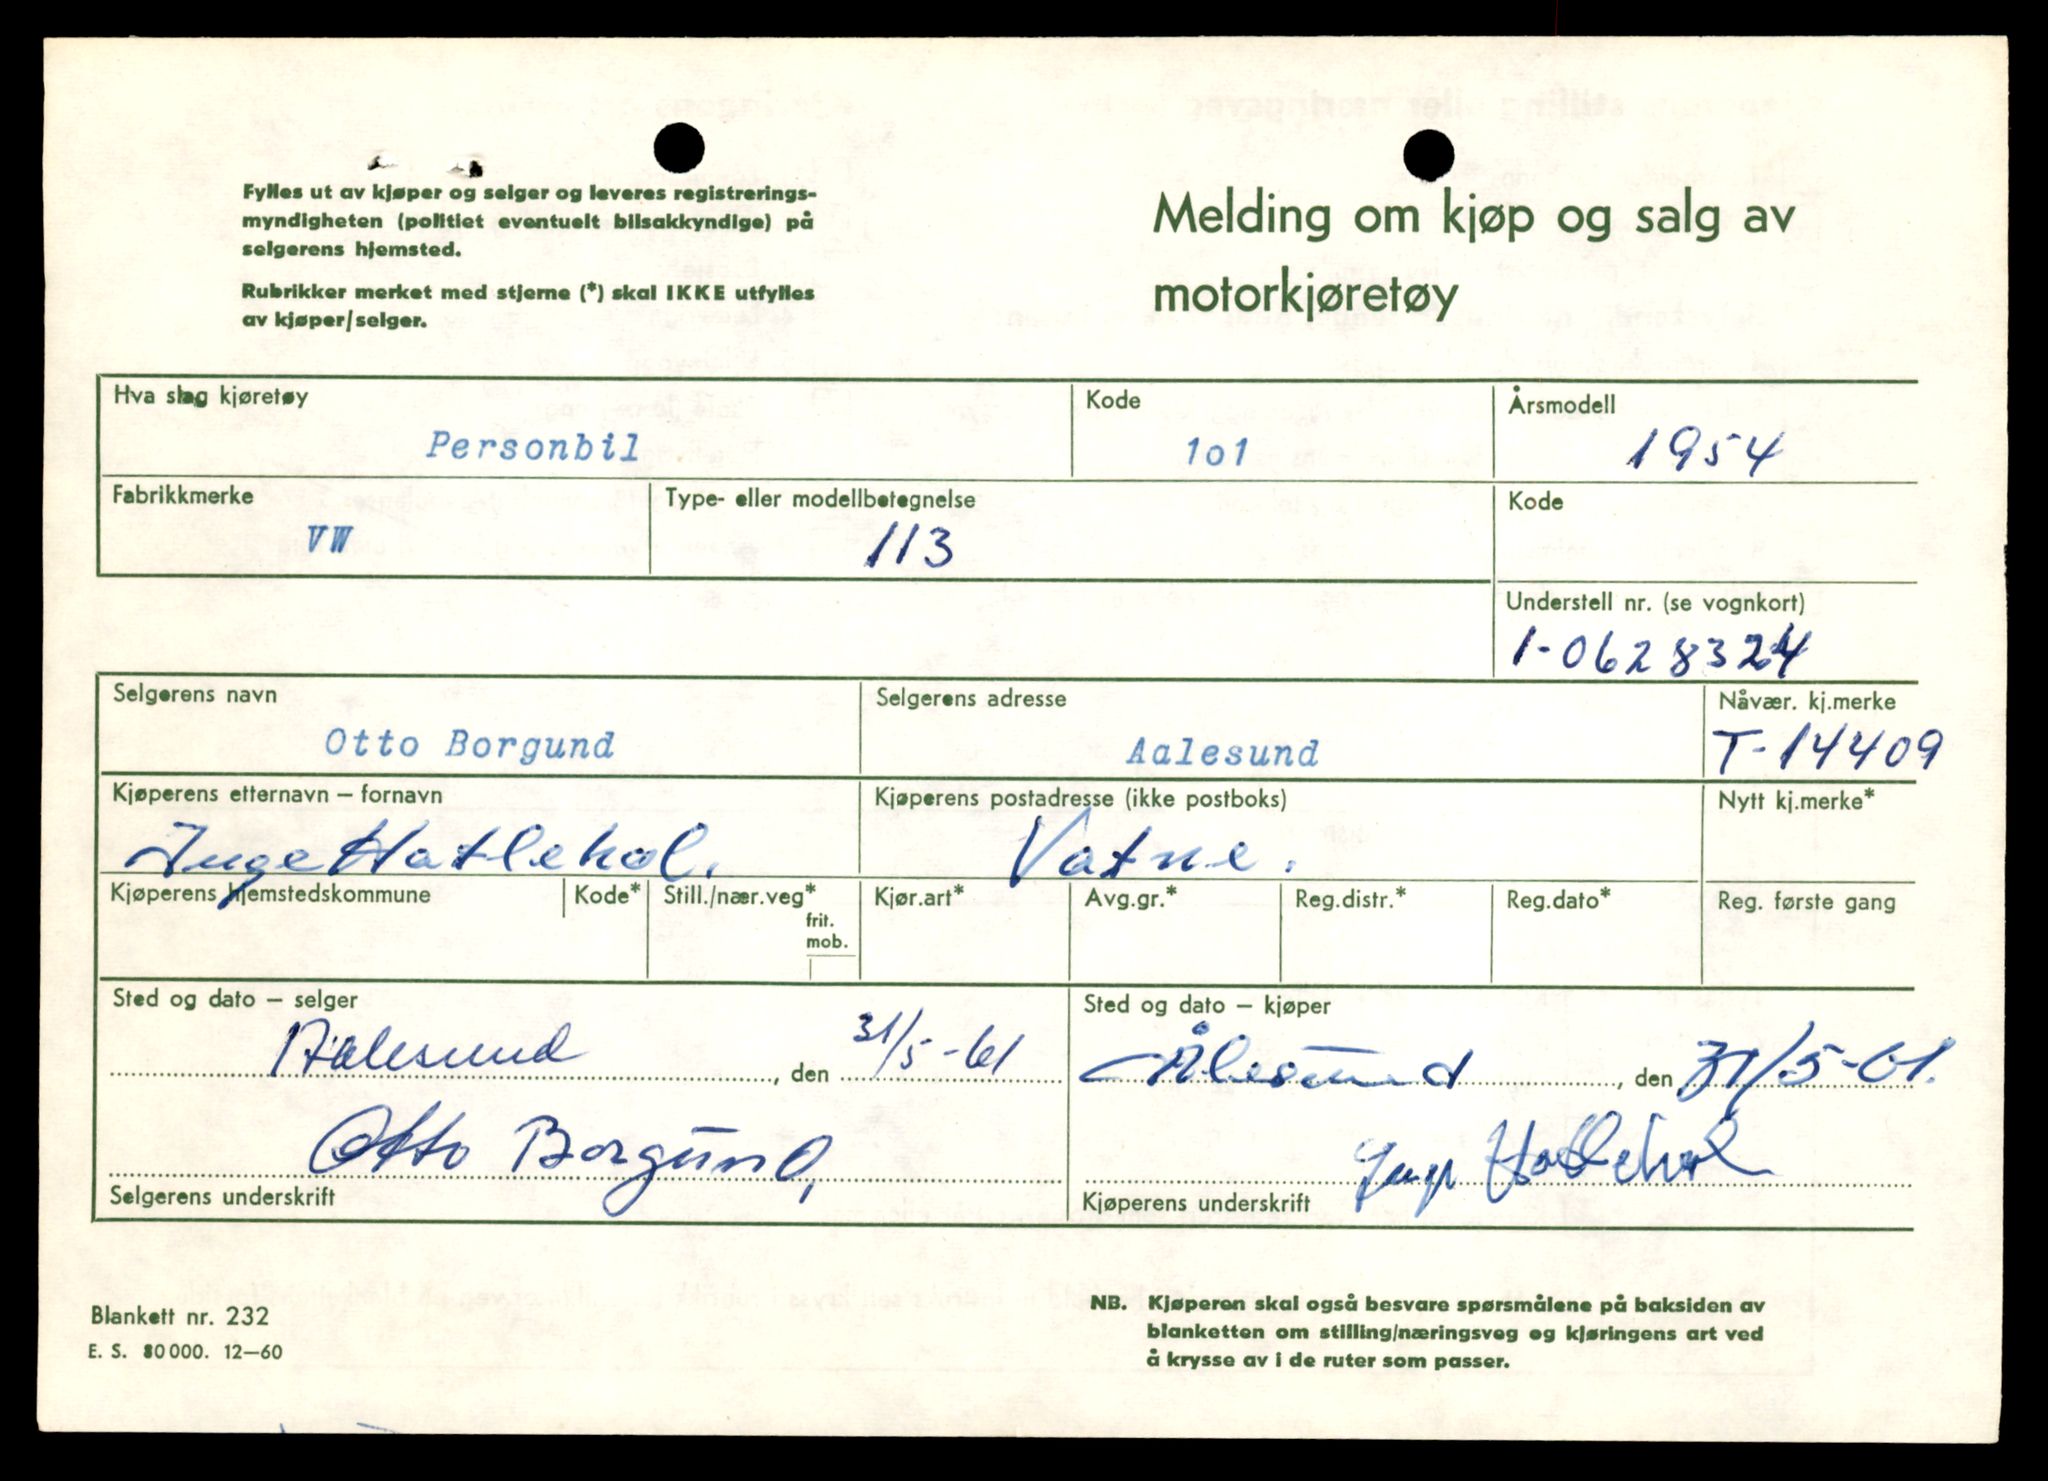 Fylles ut av kjøper og selger og leveres registrerings-
myndigheten (politiet eventuelt bilsakkyndige) på
selgerens hjemsted.
Rubrikker merket med stjerne (*) skal IKKE utfylles
av kjøper/selger.
Melding om kjøp og salg av
motorkjøretøy
Hva slag kjøretøy
Personbil
Kode
1o1
Årsmodell
1954
Fabrikkmerke
VW
Type- eller modellbetegnelse
113
Kode
Understell nr. (se vognkort)
1-0628324
Selgerens navn
Otto Borgund
Selgerens adresse
Aalesund
Nåvær. kj.merke
T-14409
Kjøperens etternavn – fornavn
Inge Hatlehol.
Kjøperens postadresse (ikke postboks)
Vatne.
Nytt kj.merke*
Kjøperens hjemstedskommune
Kode*
Still./nær.veg*
frit.
mob.
Kjør.art*
Avg.gr.*
Reg.distr.*
Reg.dato*
Reg. første gang
Sted og dato – selger
Aalesund, den 31/5-61
Sted og dato – kjøper
Ålesund, den 31/5-61.
Otto Borgund,
Selgerens underskrift
Inge Hatlehol
Kjøperens underskrift
Blankett nr. 232
E. S. 80 000. 12–60
NB. Kjøperen skal også besvare spørsmålene på baksiden av
blanketten om stilling/næringsveg og kjøringens art ved
å krysse av i de ruter som passer.